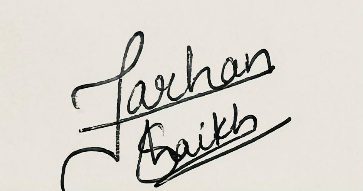 Farhan
Shaikh